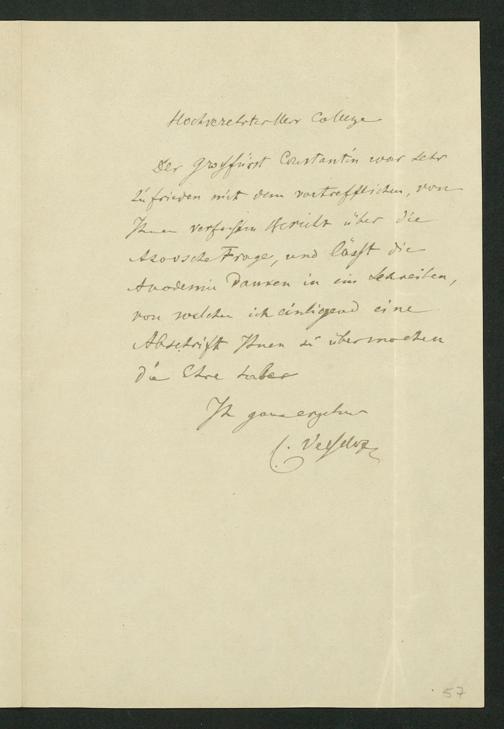 Hochverehrter Herr College
Der Großfürst Constantin war sehr
zufrieden mit dem vortrefflichen, von
Ihnen verfaßten Bericht über die
Asovsche Frage, und läßt die
Academie Danken in ein Schreiben,
von welchen ich einliegend eine
Abschrift Ihnen zu übermachen
die Ehre habe
Ihr ganz ergebner
C.
57